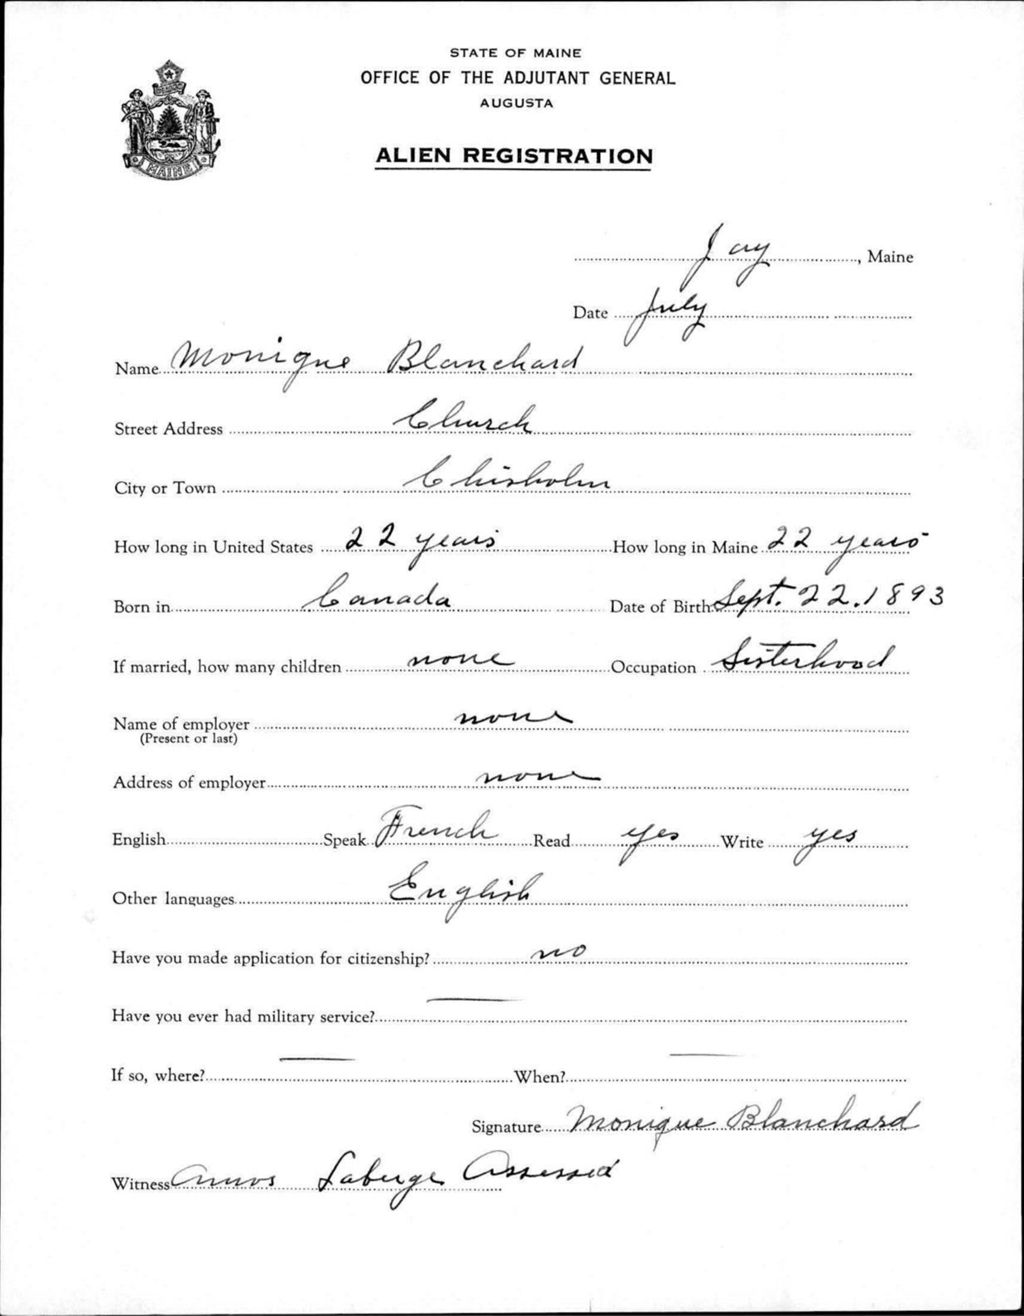 STATE OF MAINE
OFFICE OF THE ADJUTANT GENERAL
AUGUSTA
ALIEN REGISTRATION
MAINE
Jay, Maine
Date July
Name Monique Blanchard
Street Address Church
City or Town Chisholm
How long in United States 22 years How long in Maine 22 years
Born in Canada Date of Birth Sept. 22. 1893
If married, how many children none Occupation Sisterhood
Name of employer none
(Present or last)
Address of employer none
English Speak French Read yes Write yes
Other languages English
Have you made application for citizenship? no
Have you ever had military service? —
If so, where? — When? —
Signature Monique Blanchard
Witness Amos Laberge